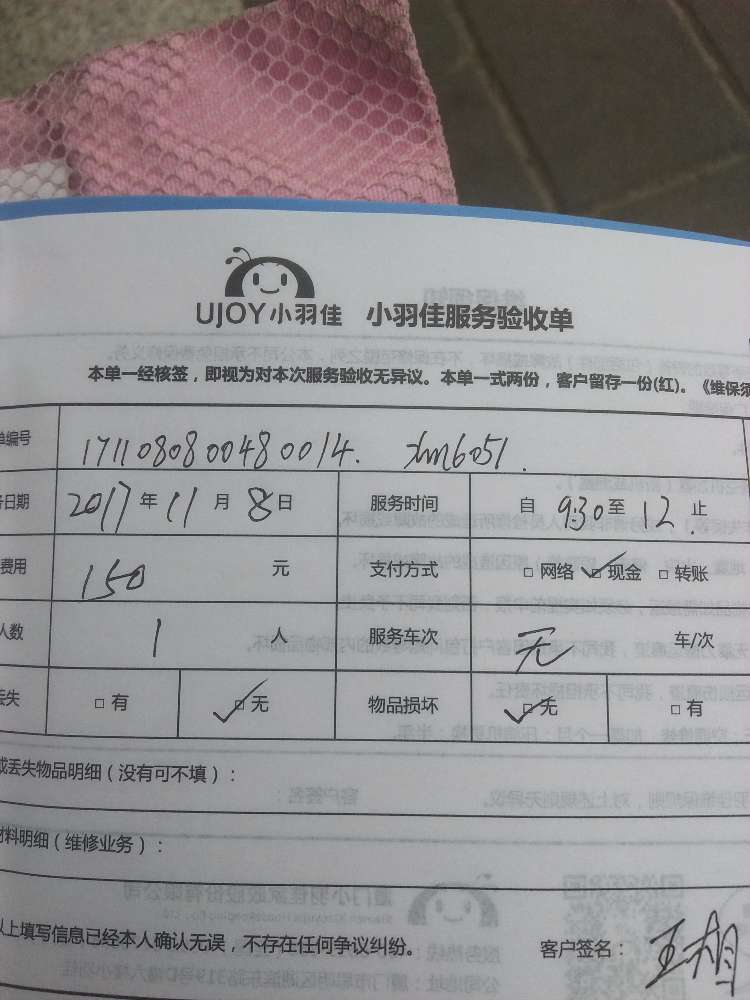 UJOY小羽佳 小羽佳服务验收单
本单一经核签，即视为对本次服务验收无异议。本单一式两份，客户留存一份(红)。《维保须
单编号 1711080800480014. xhm6051.
务日期 2017年11月8日 服务时间 自9:30至12止
费用 150元 支付方式 □网络 ☑现金 □转账
人数 1人 服务车次 无 车/次
丢失 □有 ☑无 物品损坏 ☑无 □有
或丢失物品明细（没有可不填）：
材料明细（维修业务）：
以上填写信息已经本人确认无误，不存在任何争议纠纷。 客户签名：